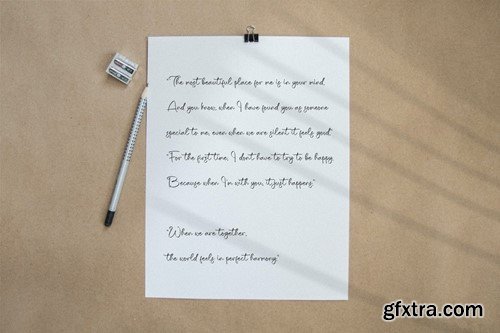 "The most beautiful place for me is in your mind.
And you know, when I have found you as someone
special to me, even when we are silent it feels good."
"For the first time, I don't have to try to be happy.
Because when I'm with you, it just happens."
"When we are together,
the world feels in perfect harmony."
gfxtra.com